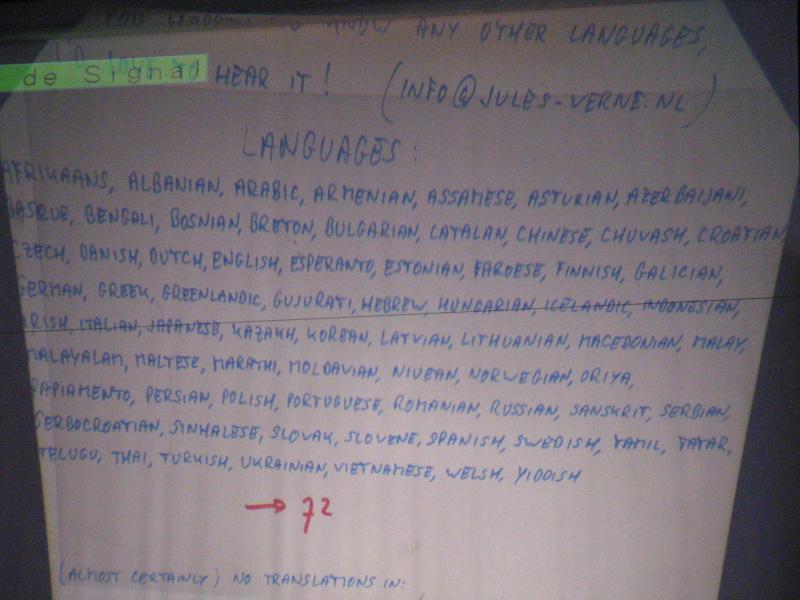 YOU HAPPEN TO KNOW ANY OTHER LANGUAGES,
de Signal
HEAR IT! (INFO@JULES-VERNE.NL)
LANGUAGES:
AFRIKAANS, ALBANIAN, ARABIC, ARMENIAN, ASSAMESE, ASTURIAN, AZERBAIJANI,
BASQUE, BENGALI, BOSNIAN, BRETON, BULGARIAN, CATALAN, CHINESE, CHUVASH, CROATIAN,
CZECH, DANISH, DUTCH, ENGLISH, ESPERANTO, ESTONIAN, FAROESE, FINNISH, GALICIAN,
GERMAN, GREEK, GREENLANDIC, GUJURATI, HEBREW, HUNGARIAN, ICELANDIC, INDONESIAN,
IRISH, ITALIAN, JAPANESE, KAZAKH, KOREAN, LATVIAN, LITHUANIAN, MACEDONIAN, MALAY,
MALAYALAM, MALTESE, MARATHI, MOLDAVIAN, NIUEAN, NORWEGIAN, ORIYA,
PAPIAMENTO, PERSIAN, POLISH, PORTUGUESE, ROMANIAN, RUSSIAN, SANSKRIT, SERBIAN,
SERBOCROATIAN, SINHALESE, SLOVAK, SLOVENE, SPANISH, SWEDISH, TAMIL, TATAR,
TELUGU, THAI, TURKISH, UKRAINIAN, VIETNAMESE, WELSH, YIDDISH
→ 72
(ALMOST CERTAINLY) NO TRANSLATIONS IN: